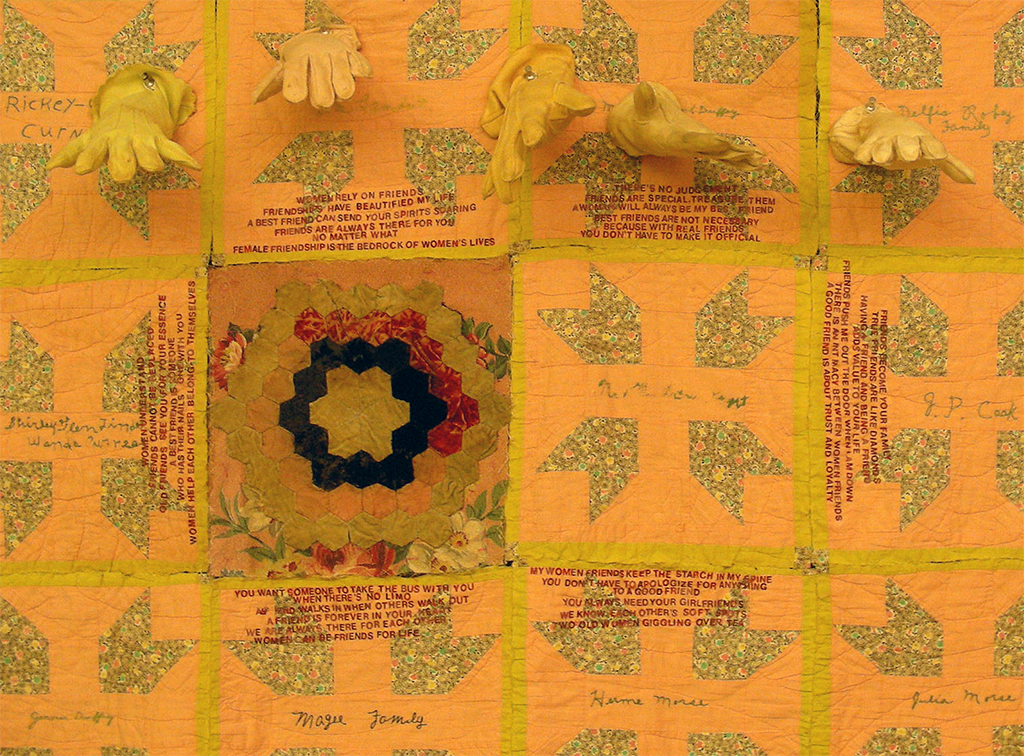 Rickey-
Curn
Duffy
Delfia Roby
Family
WOMEN RELY ON FRIENDS
FRIENDSHIPS HAVE BEAUTIFIED MY LIFE
A BEST FRIEND CAN SEND YOUR SPIRITS SOARING
FRIENDS ARE ALWAYS THERE FOR YOU
NO MATTER WHAT
FEMALE FRIENDSHIP IS THE BEDROCK OF WOMEN'S LIVES
THERE'S NO JUDGEMENT
FRIENDS ARE SPECIAL, TREASURE THEM
A WOMAN WILL ALWAYS BE MY BEST FRIEND
BEST FRIENDS ARE NOT NECESSARY
BECAUSE WITH REAL FRIENDS
YOU DON'T HAVE TO MAKE IT OFFICIAL
WOMEN UNDERSTAND
OLD FRIENDS CANNOT BE REPLACED
OLD FRIENDS SEE YOU FOR YOUR ESSENCE
A BEST FRIEND IS SOMEONE
WHO HAS THEIR NAILS DONE WITH YOU
WOMEN HELP EACH OTHER BELONG TO THEMSELVES
FRIENDS BECOME YOUR FAMILY
TRUE FRIENDS ARE LIKE DIAMONDS
HAVING A FRIEND AND BEING A FRIEND
ADDS VALUE TO YOUR LIFE
FRIENDS PUSH ME OUT THE DOOR WHEN I AM DOWN
THERE IS AN INTIMACY BETWEEN WOMEN FRIENDS
A GOOD FRIEND IS ABOUT TRUST AND LOYALTY
Shirley
Wanda
J. P. Cook
YOU WANT SOMEONE TO TAKE THE BUS WITH YOU
WHEN THERE'S NO LIMO
WHO WALKS IN WHEN OTHERS WALK OUT
A FRIEND IS FOREVER IN YOUR
WE ARE ALWAYS THERE FOR EACH OTHER
WOMEN CAN BE FRIENDS FOR LIFE
MY WOMEN FRIENDS KEEP THE STARCH IN MY SPINE
YOU DON'T HAVE TO APOLOGIZE FOR ANYTHING
TO A GOOD FRIEND
YOU ALWAYS NEED YOUR GIRLFRIENDS
WE KNOW EACH OTHER'S SOFT SPOTS
TWO OLD WOMEN GIGGLING OVER TEA
Duffy
Magee Family
Herme Morse
Julia Morse